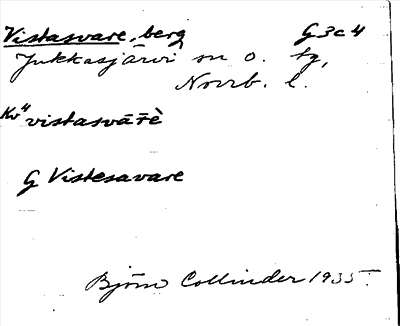 Vistasvare, berg G 3 c 4
Jukkasjärvi sn o. tg,
Norrb. l.
Kv⁴ vistasvār̄è
G Vistesavare
Björn Collinder 1935.